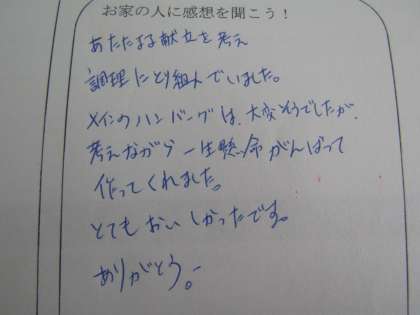 お家の人に感想を聞こう！
あたたまる献立を考え
調理にとり組んでいました。
メインのハンバーグは、大変そうでしたが、
考えながら一生懸命がんばって
作ってくれました。
とてもおいしかったです。
ありがとう。